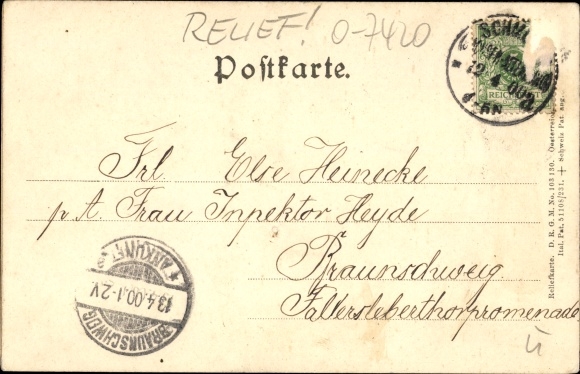 RELIEF! 0-7420
Postkarte.
SCHMA
12 4 00
REICHSPOST
Frl Else Heinecke
p. A. Frau Inpektor Heyde
Braunschweig
Fallersleberthorpromenade
BRAUNSCHWEIG
13.4.00.1-2V.
* ANKUNFT *
Reliefkarte. D. R. G. M. No. 103130. Oesterreich.
Ital. Pat. 51198/231. + Schweiz Pat. ang.